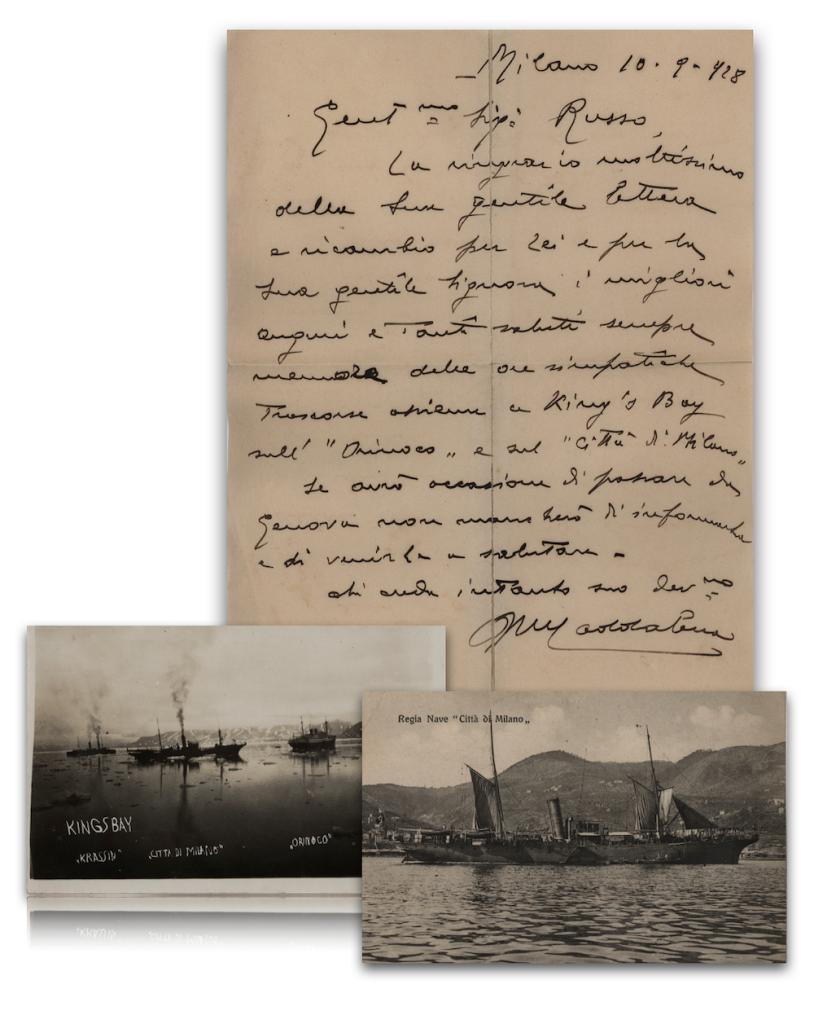 Milano 10-9-928
Gent.mo Sig. Russo,
La ringrazio moltissimo
della Sua gentile lettera
e ricambio per Lei e per la
Sua gentile Signora i migliori
auguri e tanti saluti sempre
memore delle ore simpatiche
trascorse assieme a King's Bay
sull' "Orinoco" e sul "Città di Milano"
Se avrò occasione di passare da
Genova non mancherò d'informarla
e di venirLa a salutare.
Mi creda intanto suo dev.mo
Maddalena
KINGSBAY
„KRASSIN"
„CITTA DI MILANO"
„ORINOCO"
Regia Nave "Città di Milano„